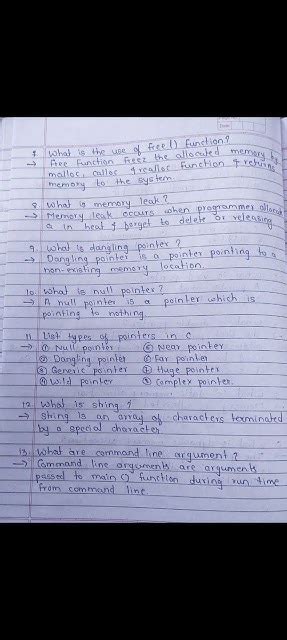 7. What is the use of free() function?
→ free function freez the allocated memory by
malloc, calloc & realloc function & returns
memory to the system
8. What is memory leak?
→ Memory leak occurs when programmer allocate
a in heat & forget to delete or releasing
9. What is dangling pointer?
→ Dangling pointer is a pointer pointing to a
non-existing memory location.
10. What is null pointer?
→ A null pointer is a pointer which is
pointing to nothing.
11. List types of pointers in c
→ ① Null pointer ⑤ Near pointer
② Dangling pointer ⑥ Far pointer
③ Generic pointer ⑦ Huge pointer
④ Wild pointer ⑧ Complex pointer.
12. What is string?
→ String is an array of characters terminated
by a special character
13. What are command line argument?
→ Command line arguments are arguments
passed to main() function during run time
from command line